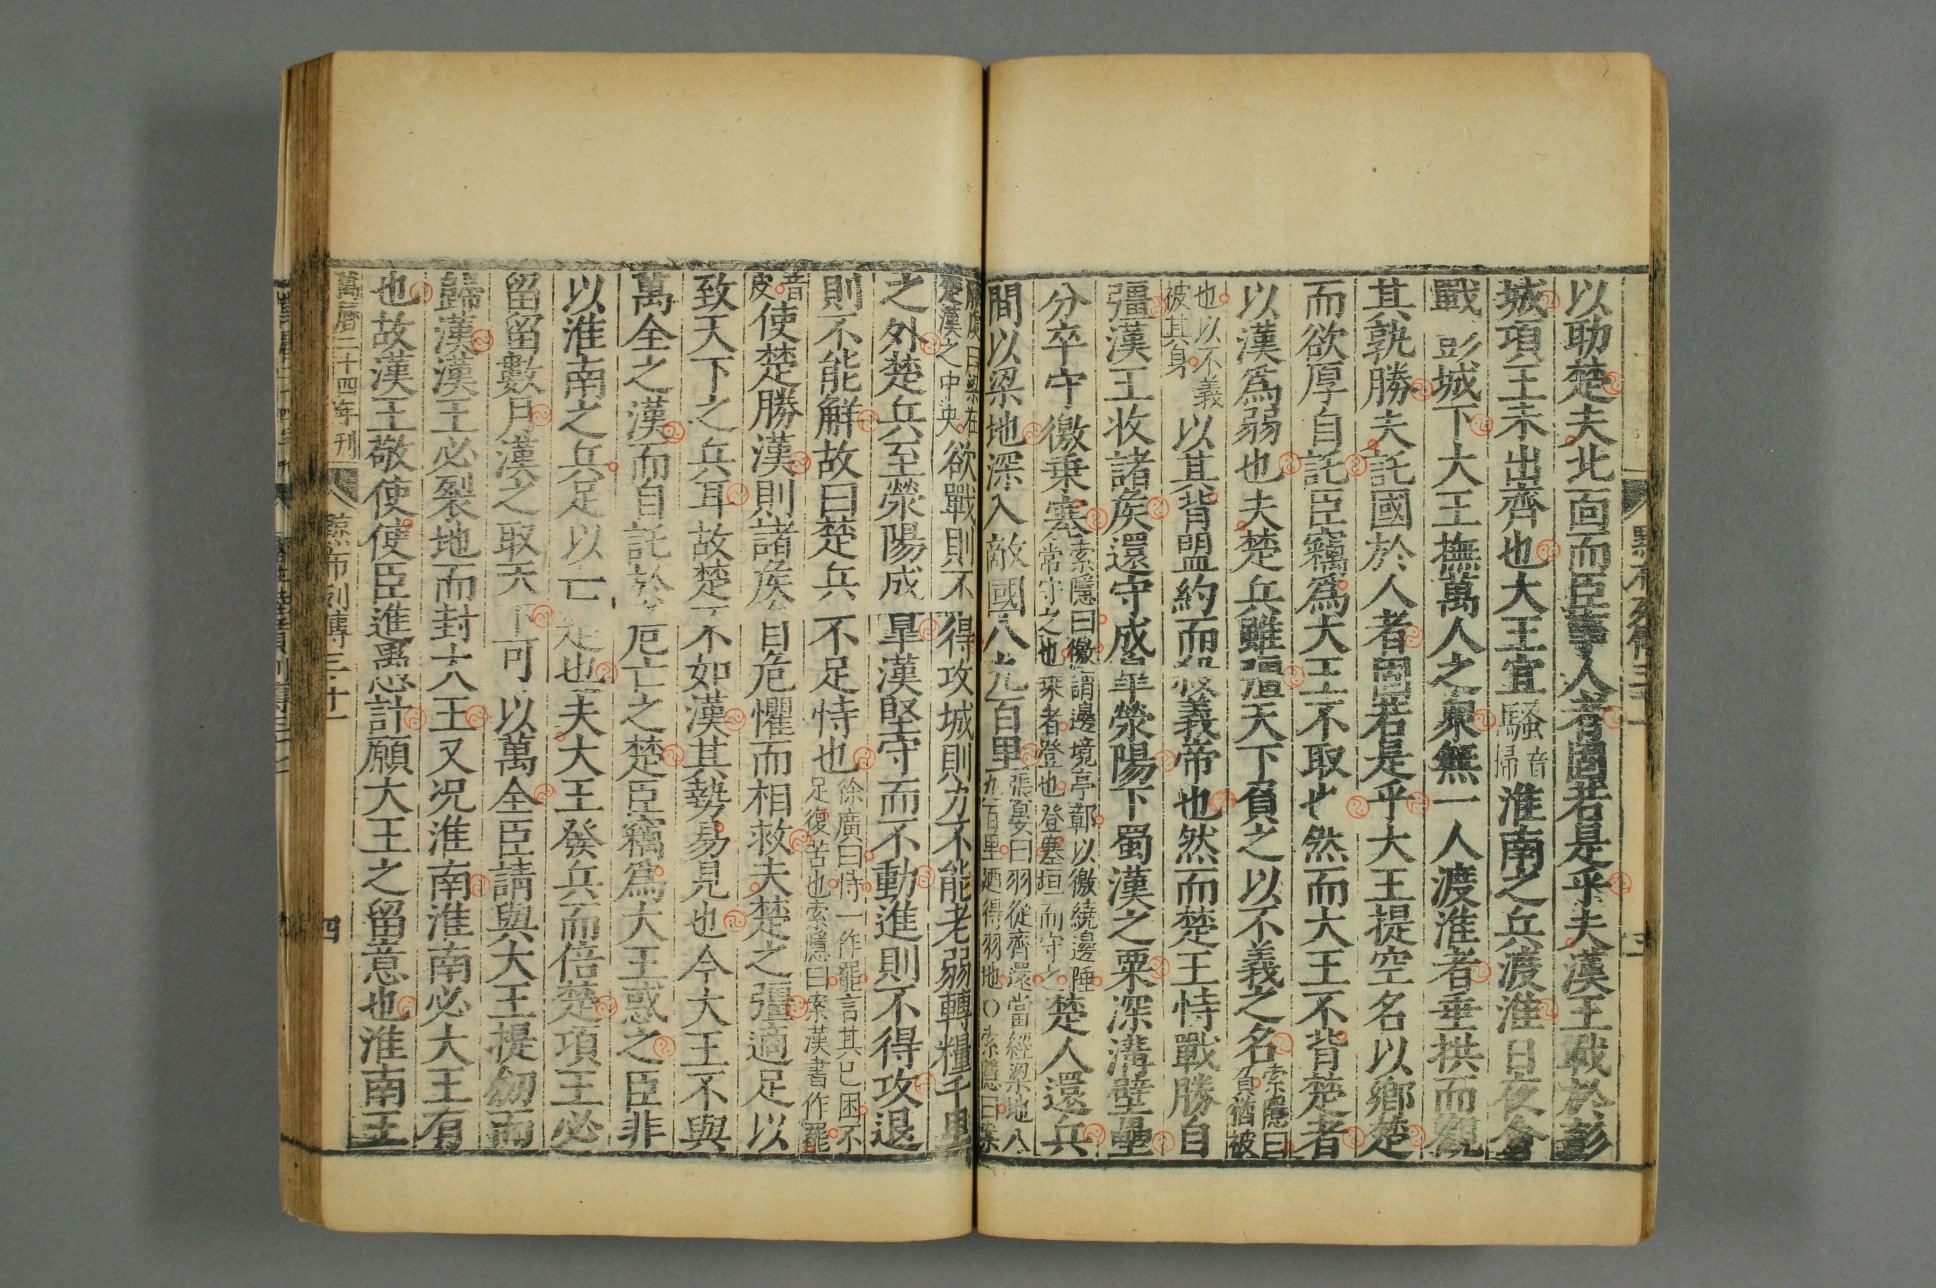 以助楚夫北面而臣事人者固若是乎夫漢王戰於彭
城項王未出齊也大王宜騷音掃淮南之兵渡淮日夜會
戰彭城下大王撫萬人之衆無一人渡淮者垂拱而觀
其孰勝夫託國於人者固若是乎大王提空名以鄉楚
而欲厚自託臣竊爲大王不取也然而大王不背楚者
以漢爲弱也夫楚兵雖彊天下負之以不義之名索隱曰負猶被
也以不義被其身以其背盟約而殺義帝也然而楚王恃戰勝自
彊漢王收諸侯還守成皋滎陽下蜀漢之粟深溝壁壘
分卒守徼乗塞索隱曰徼謂邊境亭鄣以徼繞邊陲常守之也乗者登也登塞垣而守之楚人還兵
間以梁地深入敵國八九百里張晏曰羽從齊還當經梁地八九百里廼得羽地〇索隱曰案
服虔曰梁在楚漢之中央欲戰則不得攻城則力不能老弱轉糧千里
之外楚兵至滎陽成皋漢堅守而不動進則不得攻退
則不能解故曰楚兵不足恃也徐廣曰恃一作罷言其已困不足復苦也索隱曰案漢書作罷
音皮使楚勝漢則諸侯自危懼而相救夫楚之彊適足以
致天下之兵耳故楚不如漢其勢易見也今大王不與
萬全之漢而自託於危亡之楚臣竊爲大王惑之臣非
以淮南之兵足以亡楚也夫大王發兵而倍楚項王必
留留數月漢之取天下可以萬全臣請與大王提劒而
歸漢漢王必裂地而封大王又况淮南淮南必大王有
也故漢王敬使使臣進愚計願大王之留意也淮南王
萬曆二十四年刊 黥布列傳三十一 四